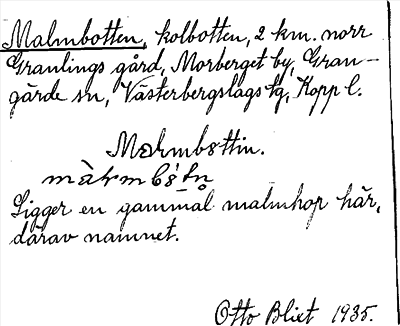 Malmbotten, kolbotten, 2 km. norr
Granlings gård, Morberget by, Gran-
gärde sn, Västerbergslags tg, Kopp l.
Marmbottin.
Ligger en gammal malmhop här,
därav namnet.
Otto Blixt 1935.